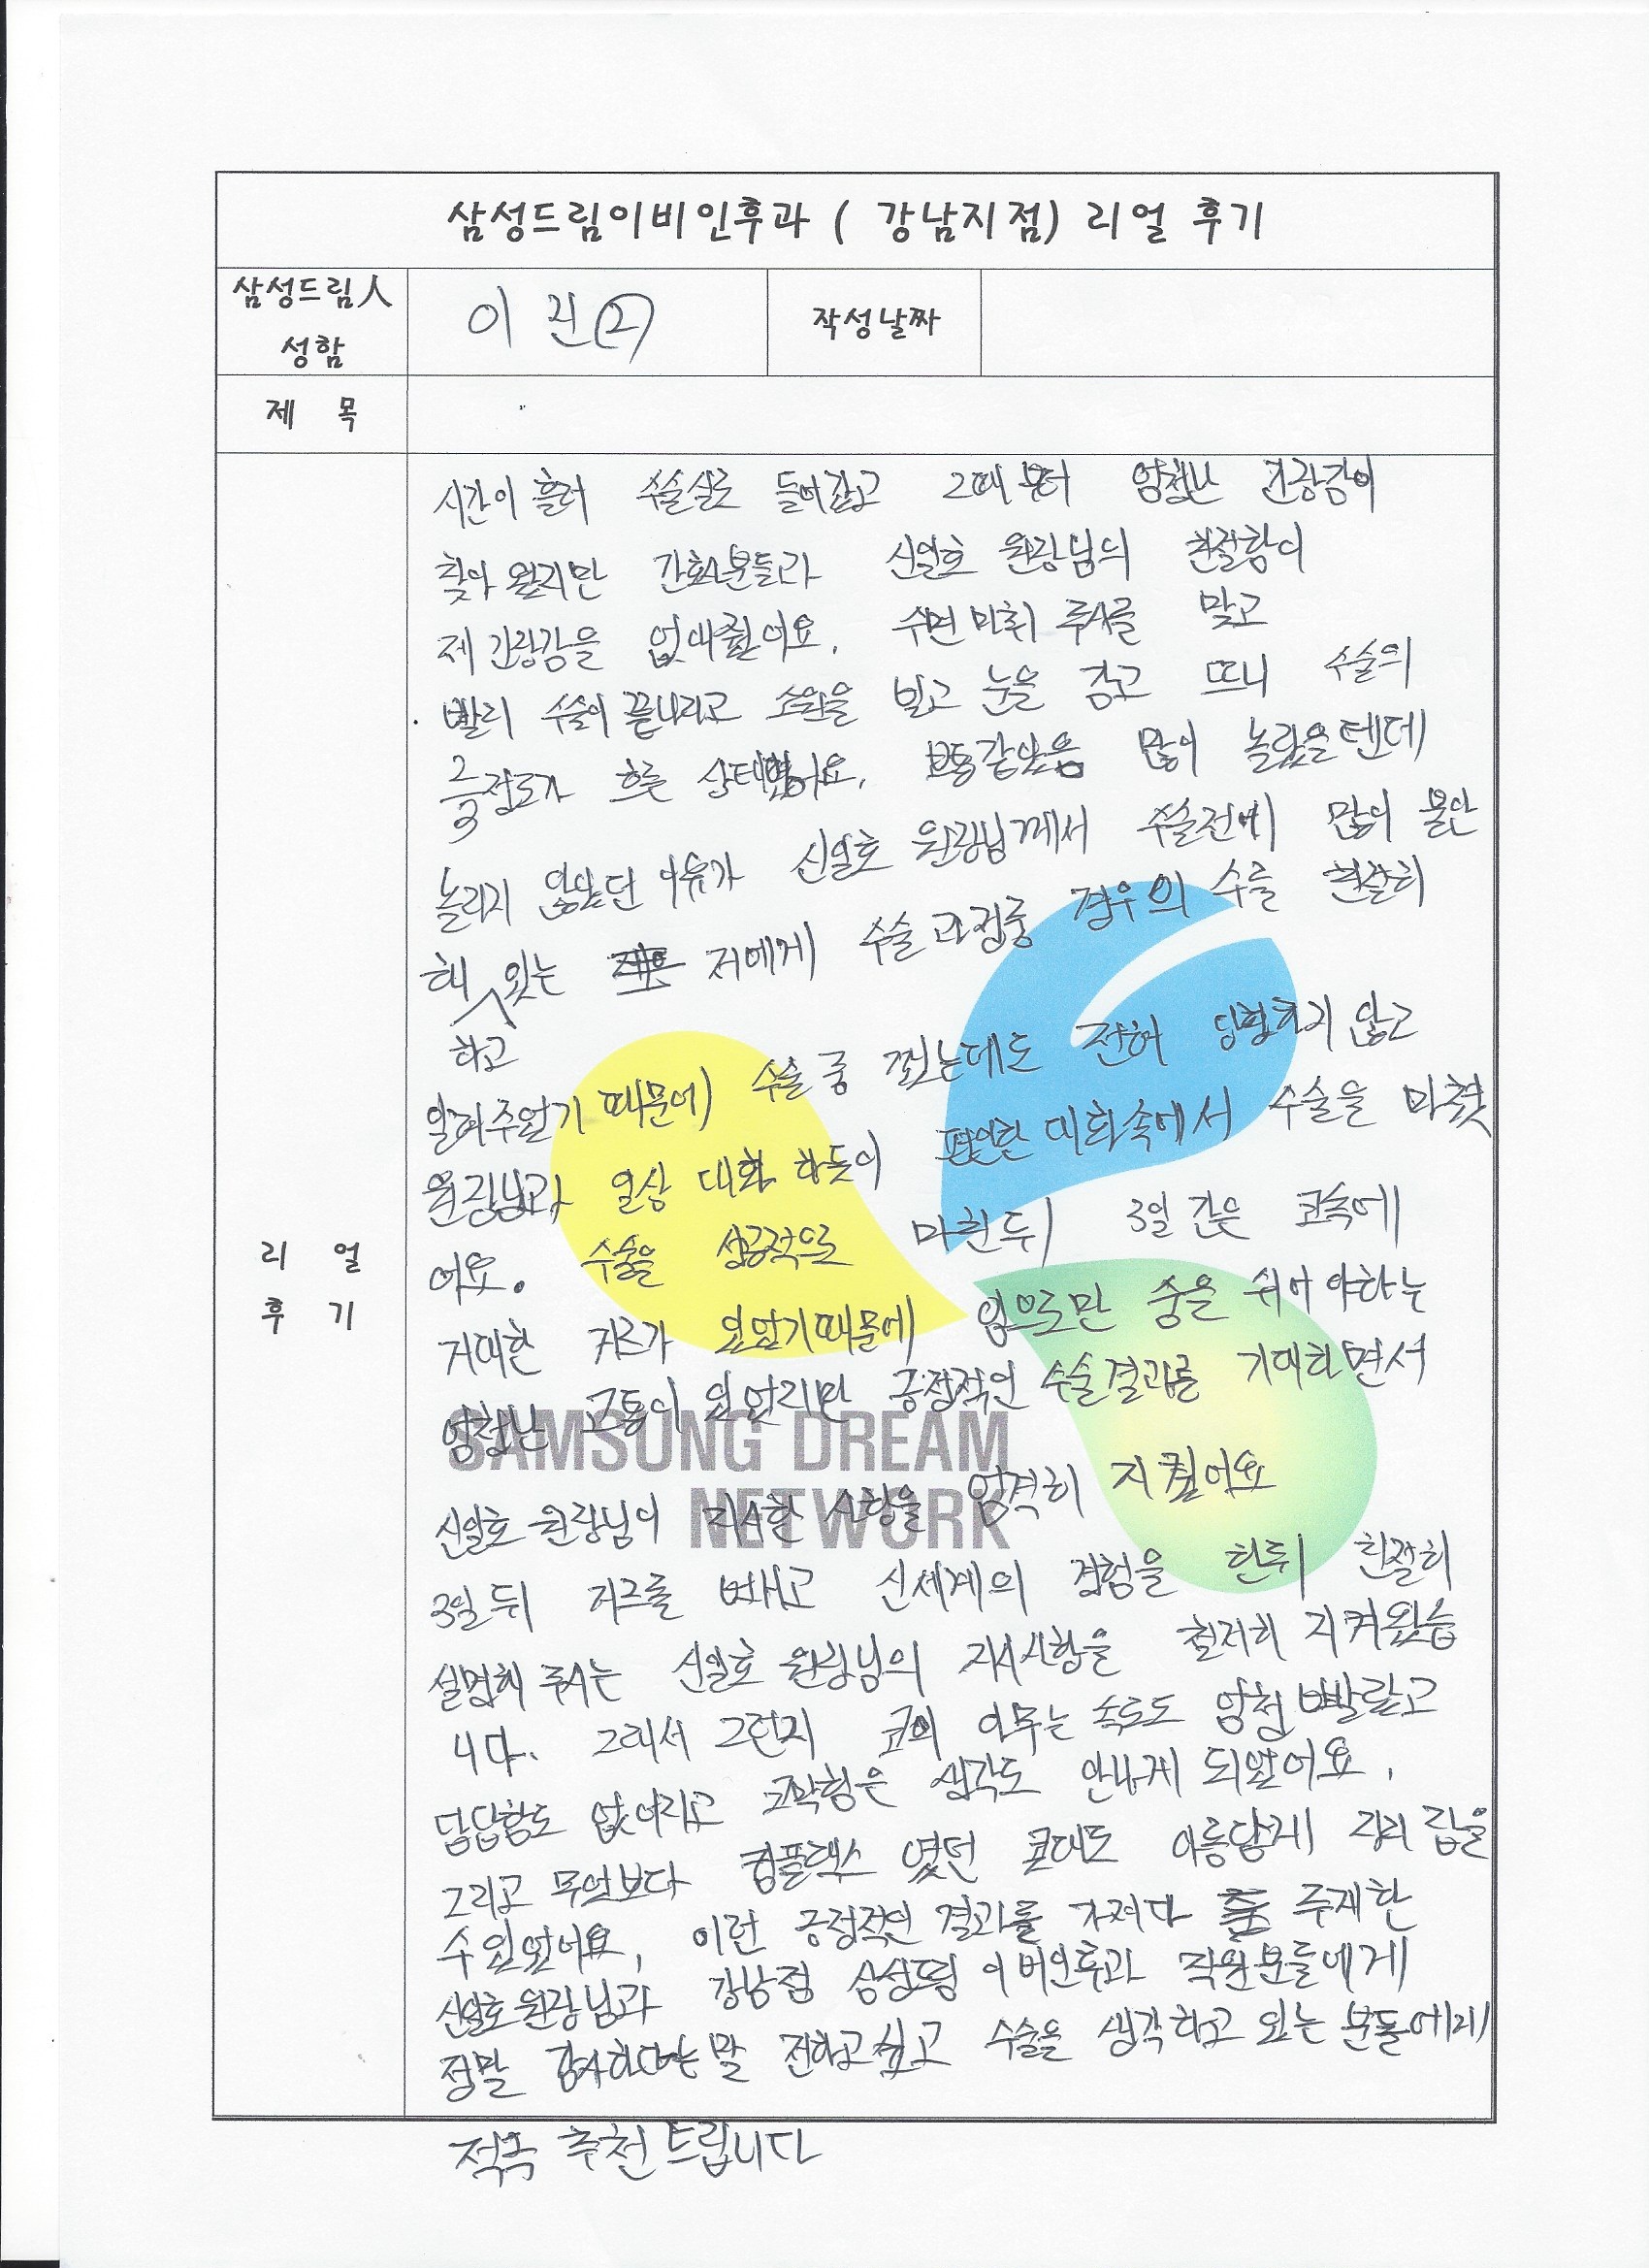 삼성드림이비인후과 ( 강남지점) 리얼 후기
삼성드림人
성함
이 진(2)
작성날짜
제 목
리 얼
후 기
시간이 흘러 수술실로 들어갔고 그때부터 엄청난 긴장감이
찾아 왔지만 간호사분들과 신일호 원장님의 친절함이
제 긴장감을 없애줬어요. 수면마취 주사를 맞고
빨리 수술이 끝나라고 소원을 빌고 눈을 감고 뜨니 수술의
중정도가 흐른 상태였어요. 보통같았음 많이 놀랐을텐데
놀라지 않았던 이유가 신일호 원장님께서 수술전에 많이 불안
해 있는 저에게 수술과정중 경우의 수를 친절히
하고
알려주었기 때문에 수술 중 깼는데도 전혀 당황하지 않고
원장님과 일상 대화 하듯이 편안한 대화속에서 수술을 마쳤
어요. 수술을 성공적으로 마친뒤 3일 간은 코속에
거대한 거즈가 있었기때문에 입으로만 숨을 쉬어야하는
엄청난 고통이 있었지만 긍정적인 수술결과를 기대하면서
신일호 원장님이 지시한 사항을 엄격히 지켰어요
3일뒤 거즈를 빼고 신세계의 경험을 한뒤 친절히
설명해 주시는 신일호 원장님의 지시사항을 철저히 지켜왔습
니다. 그래서 그런지 코의 아무는 속도도 엄청 빨랐고
답답함도 없어지고 코막힘은 생각도 안나게 되었어요.
그리고 무엇보다 컴플렉스 였던 콧대도 아름답게 자리 잡을
수있었어요. 이런 긍정적인 결과를 가져다 주게한
신일호원장님과 강남점 삼성드림 이비인후과 직원분들에게
정말 감사하다는말 전하고싶고 수술을 생각하고 있는 분들에게
적극 추천드립니다
SAMSUNG DREAM
NETWORK